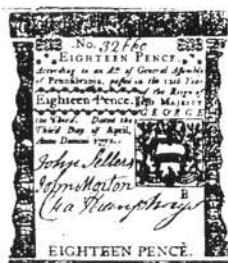 No. 3266
EIGHTEEN PENCE.
According to an Act of General Assembly
of Pennsylvania, passed in the 12th Year
of the Reign of
Eighteen Pence. His MAJESTY
GEORGE
the Third. Dated the
Third Day of April,
Anno Domini 1772.
John Sellers
John Morton
Cha Humphreys
B
EIGHTEEN PENCE.